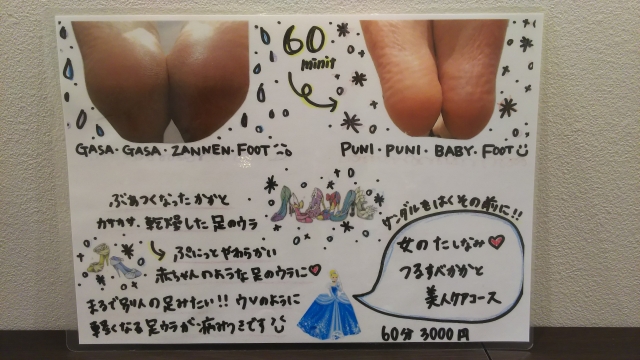 60
minit
GASA・GASA・ZANNEN・FOOT
PUNI・PUNI・BABY・FOOT
ぶあつくなったかかとと
カサカサ、乾燥した足のウラ
ぷにっとやわらかい
赤ちゃんのような足のウラに
まるで別人の足みたい!! ウソのように
軽くなる足ウラが病みつきです
サンダルをはくその前に!!
女のたしなみ
つるすべかかと
美人ケアコース
60分 3000円